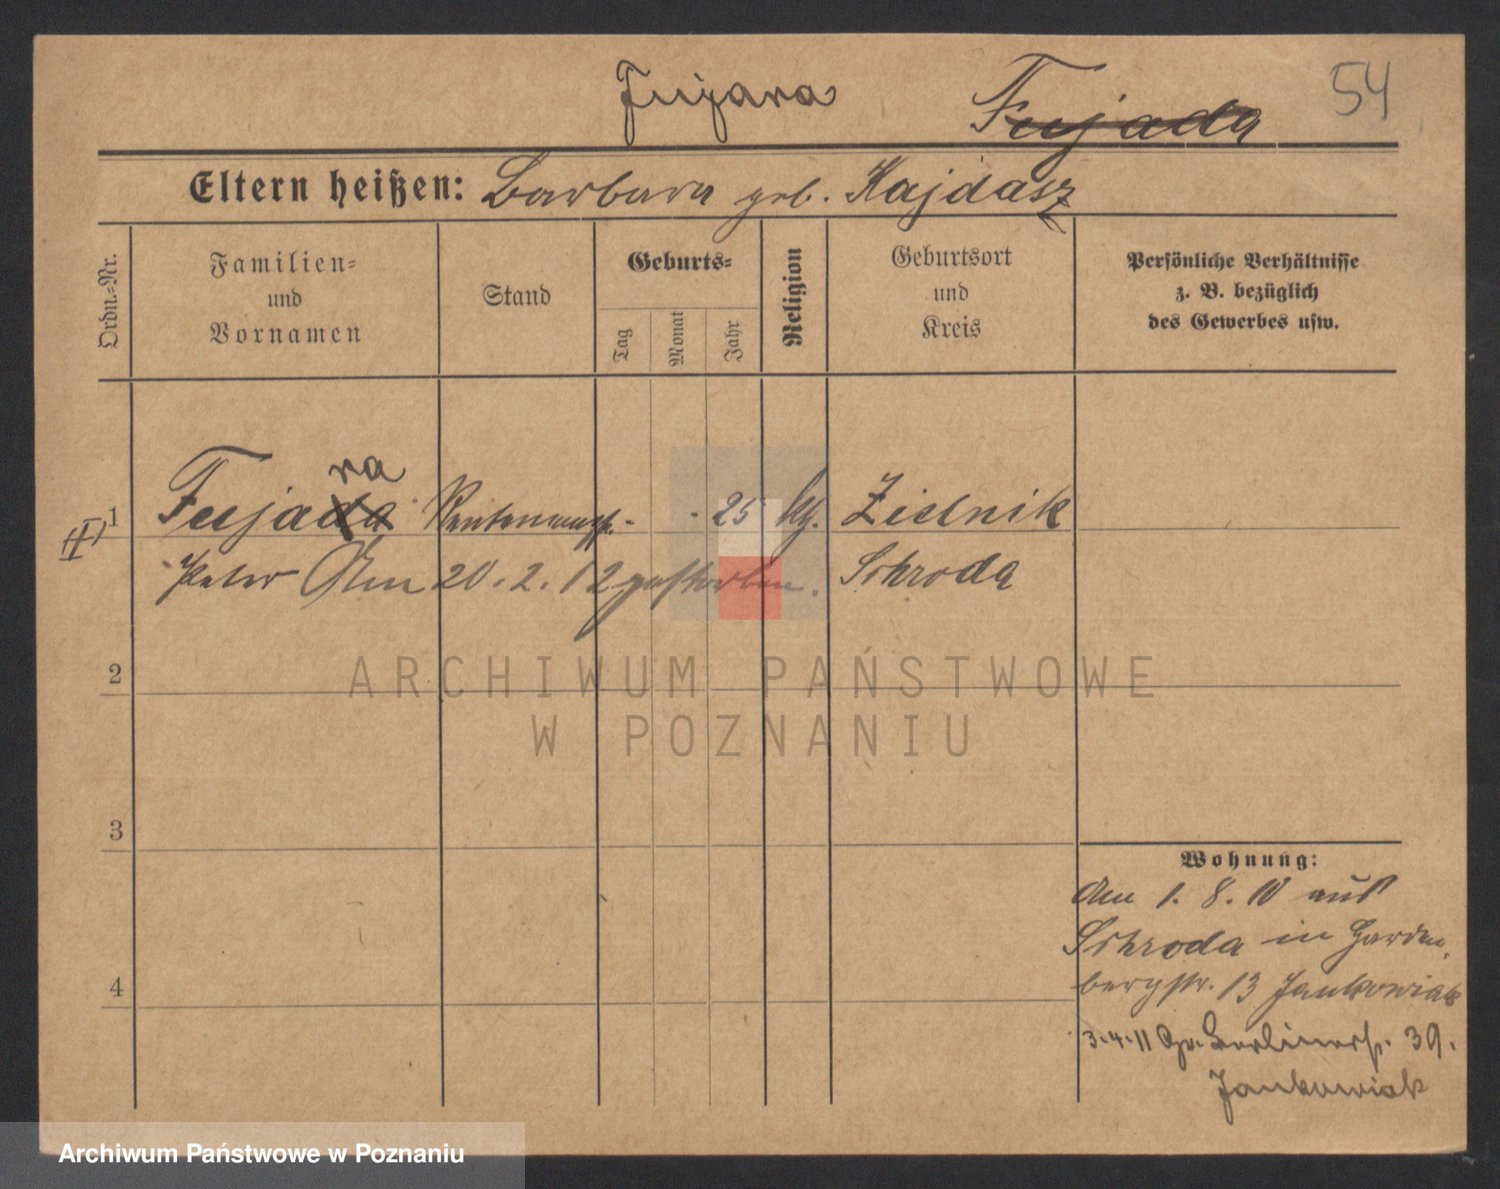 Fujara Fujada 54
Eltern heißen: Barbara geb. Kajdasz
Ordn.-Nr.
Familien-
und
Vornamen
Stand
Geburts-
Tag
Monat
Jahr
Religion
Geburtsort
und
Kreis
Persönliche Verhältnisse
z. B. bezüglich
des Gewerbes usw.
ra
1 Fujada - 25 Zielnik
Peter Am 20.2.12 gestorben. Schroda
2
ARCHIWUM PAŃSTWOWE
W POZNANIU
3
4
Wohnung:
Am 1.8.10 aus
Schroda in Harden
bergstr. 13 Jankowiak
3.4.11 Gr. Berlinerstr. 39.
Jankowiak
Archiwum Państwowe w Poznaniu